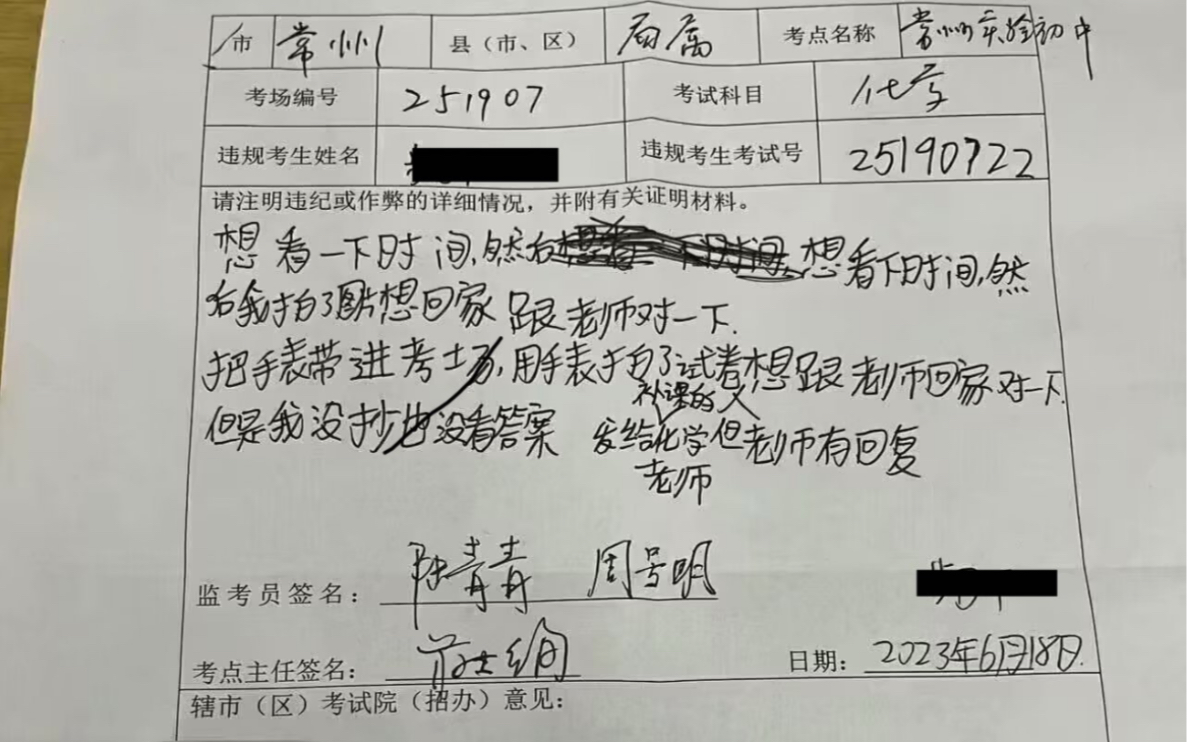 市 常州 县（市、区） 局属 考点名称 常州实验初中
考场编号 251907 考试科目 化学
违规考生姓名 违规考生考试号 25190722
请注明违纪或作弊的详细情况，并附有关证明材料。
想看一下时间,然后想看一下时间,想看下时间,然
后我拍了图片想回家跟老师对一下.
把手表带进考场,用手表拍了试卷想跟老师回家对一下.
补课的
但是我没抄也没看答案 发给化学但老师有回复
老师
监考员签名： 陆青青 周号明
考点主任签名：
日期： 2023年6月18日.
辖市（区）考试院（招办）意见：